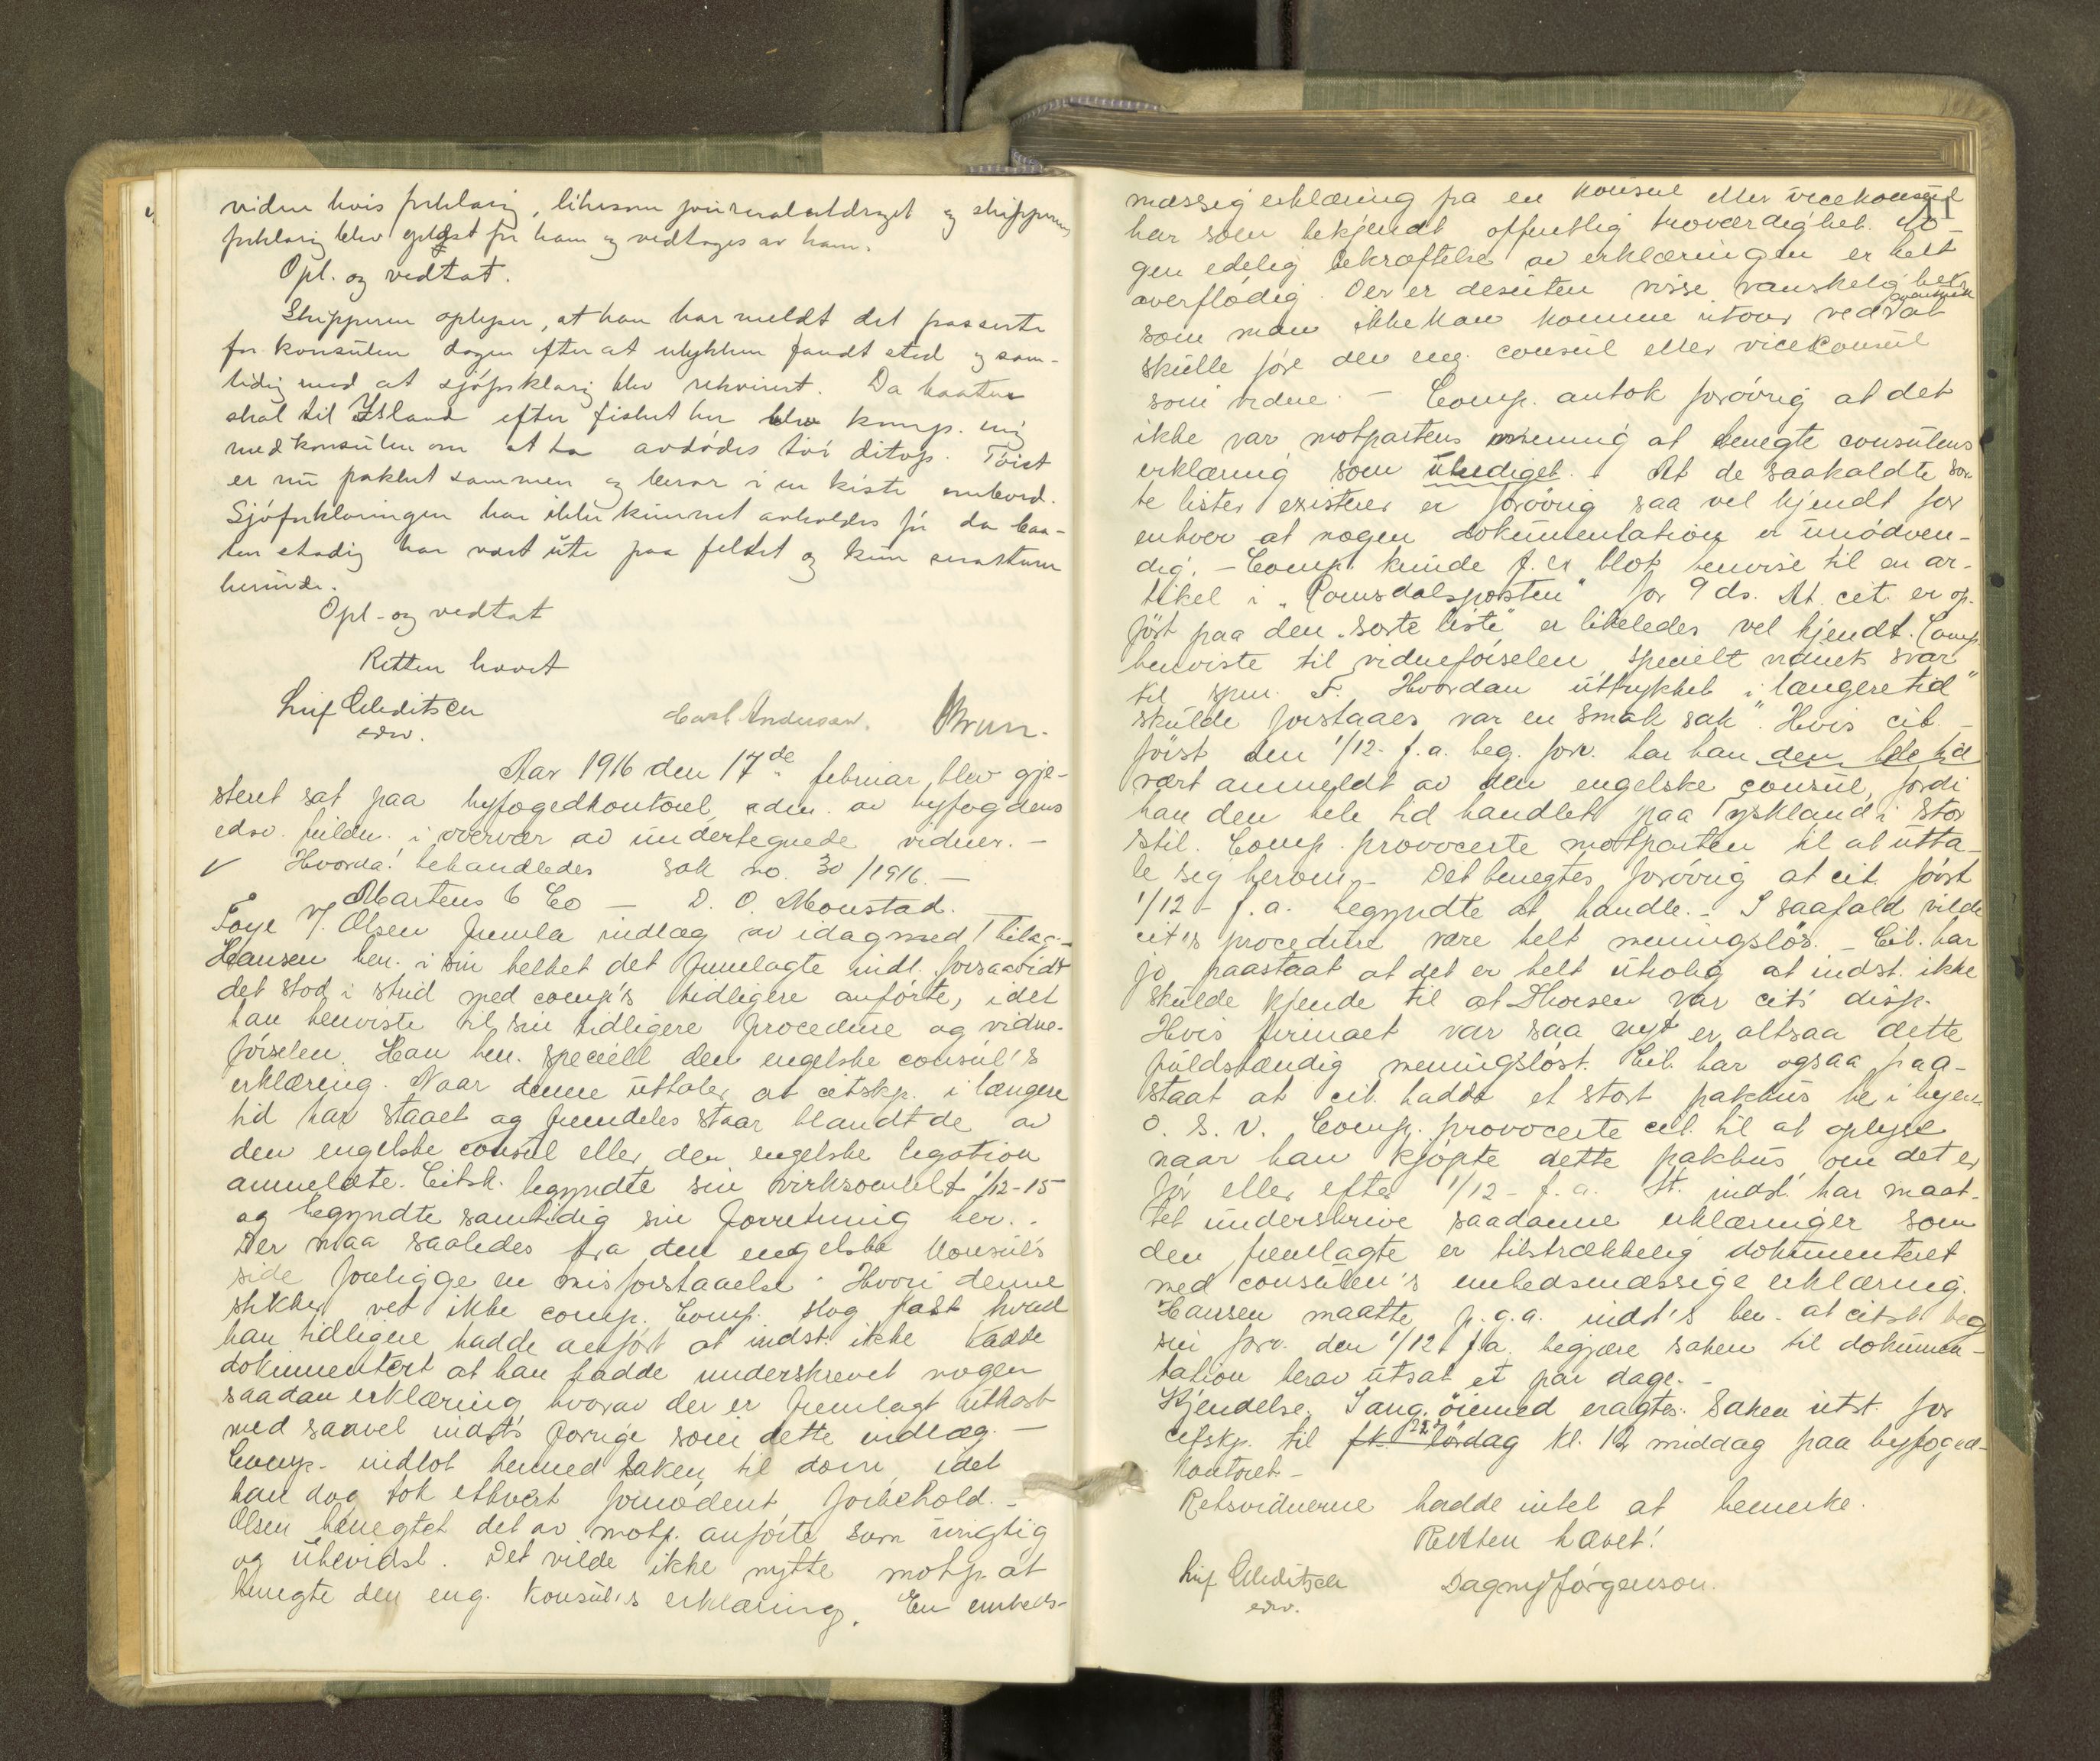 viden hvis forklaring, likesom journalutdraget og skipperens
forklaring blev oplæst for ham og vedtages av ham.
Opl. og vedtat.
Skipperen oplyser, at han har meldt det passerte
for konsulen dagen efter at ulykken fandt sted og sam-
tidig med at sjøforklaring blev rekvirert. Da baaten
skal til Island efter fisket her blev komp. enig
med konsulen om at ta avdødes tøi ditop. Tøiet
er nu pakket sammen og beror i en kiste ombord.
Sjøforklaringen har ikke kunnet avholdes før da baa-
ten stadig har vært ute paa feltet og kun
herinde.
Opl. og vedtat
Retten hævet
Leif Melditsen
edsv.
Carl Andersen. Brun.
Aar 1916 den 17de februar blev gje-
steret sat paa byfogedkontoret adm. av byfogdens
edsv. fuldm. i overvær av undertegnede vidner. –
✓ Hvorda! behandledes sak no. 30/1916. –
Martens & Co – D. O. Moustad.
Foye v/ Olsen fremla indlæg av idag med 1 bilag. –
Hansen ben. i sin helhet det fremlagte indl. forsaavidt
det stod i strid med comp's tidligere anførte, idet
han henviste til sin tidligere procedure og vidne-
førselen. Han ben. speciell den engelske consul's
erklæring. Naar denne uttaler at citskp. i længere
tid har staaet og fremdeles staar blandt de av
den engelske consul eller den engelske legation
anmeldte. Citsk. begyndte sin virksomhet 1/12-15
og begyndte samtidig sin forretning her. .
Der maa saaledes fra den engelske konsul's
side foreligge en misforstaaelse. Hvori denne
stikker vet ikke comp. Comp. slog fast hvad
han tidligere hadde anført at indst. ikke hadde
dokumentert at han hadde underskrevet nogen
saadan erklæring hvorav der er fremlagt utkast
med saavel indst's forrige som dette indlæg. –
Comp. indlot hermed saken til dom, idet
han dog tok ethvert fornødent forbehold. –
Olsen benegtet det av motp. anførte som urigtig
og ubevist. Det vilde ikke nytte motp. at
benegte den eng. konsul's erklæring. En embeds-
41
mæssig erklæring fra en konsul eller vicekonsul
har som bekjendt offentlig troværdighet. No-
gen edelig bekræftelse av erklæringen er helt
overflødig. Der er desuten visse vanskelig heter
som man ikke kan komme utover ved at
skulle føre den eng. consul eller vicekonsul
som vidne. – Comp. antok forøvrig at det
ikke var motpartens mening at benegte consulens
erklæring som uhediget. At de saakaldte sor-
te lister existerer er forøvrig saa vel kjendt for
enhver at nogen dokumentation er unødven-
dig. – Comp. kunde f. ex blot henvise til en ar-
tikel i „Romsdalsposten" for 9 ds. At cit. er op-
ført paa den „sorte liste" er likeledes vel kjendt. Comp.
henviste til vidneførselen specielt vidnets svar
til spm. F. Hvordan uttrykket „i længere tid"
skulde forstaaes var en smak sak". Hvis cit.
først den 1/12- f.a. beg. forr. har han den hele tid
vært anmeldt av den engelske consul, fordi
han den hele tid handlet paa Tyskland i stor
stil. Comp. provocerte motparten til at utta-
le sig herom. – Det benegtes forøvrig at cit. først
1/12 – f.a. begyndte at handle. – I saafald vilde
cit's procedure være helt meningsløs. – Cit. har
jo paastaat at det er helt utrolig at indst. ikke
skulde kjende til at Thoesen var cit's disp.
Hvis firmaet var saa nyt er altsaa dette
fuldstændig meningsløst. Cit. har ogsaa paa-
staat at cit. hadde et stort pakhus he i byen
o. s. v. Comp. provocerte cit. til at oplyse
naar han kjøpte dette pakhus, om det er
før eller efter 1/12 – f.a. At indst. har maat-
tet underskrive saadanne erklæringer som
den fremlagte er tilstrækkelig dokumenteret
med consulen's embedsmæssige erklæring.
Hansen maatte p.g.a. indst's ben. at citsk beg
sin forr. den 1/12 f.a. begjære saken til dokumen-
tation herav utsat et par dage. –
Kjendelse. I ang. øiemed eragtes. Saken utst. for
citskp. til lørdag kl. 12 middag paa byfoged-
kontoret –
Retsvidnerne hadde intet at bemerke.
Retten hævet!
Leif Melditsen
edsv.
Dagny Jørgensen.